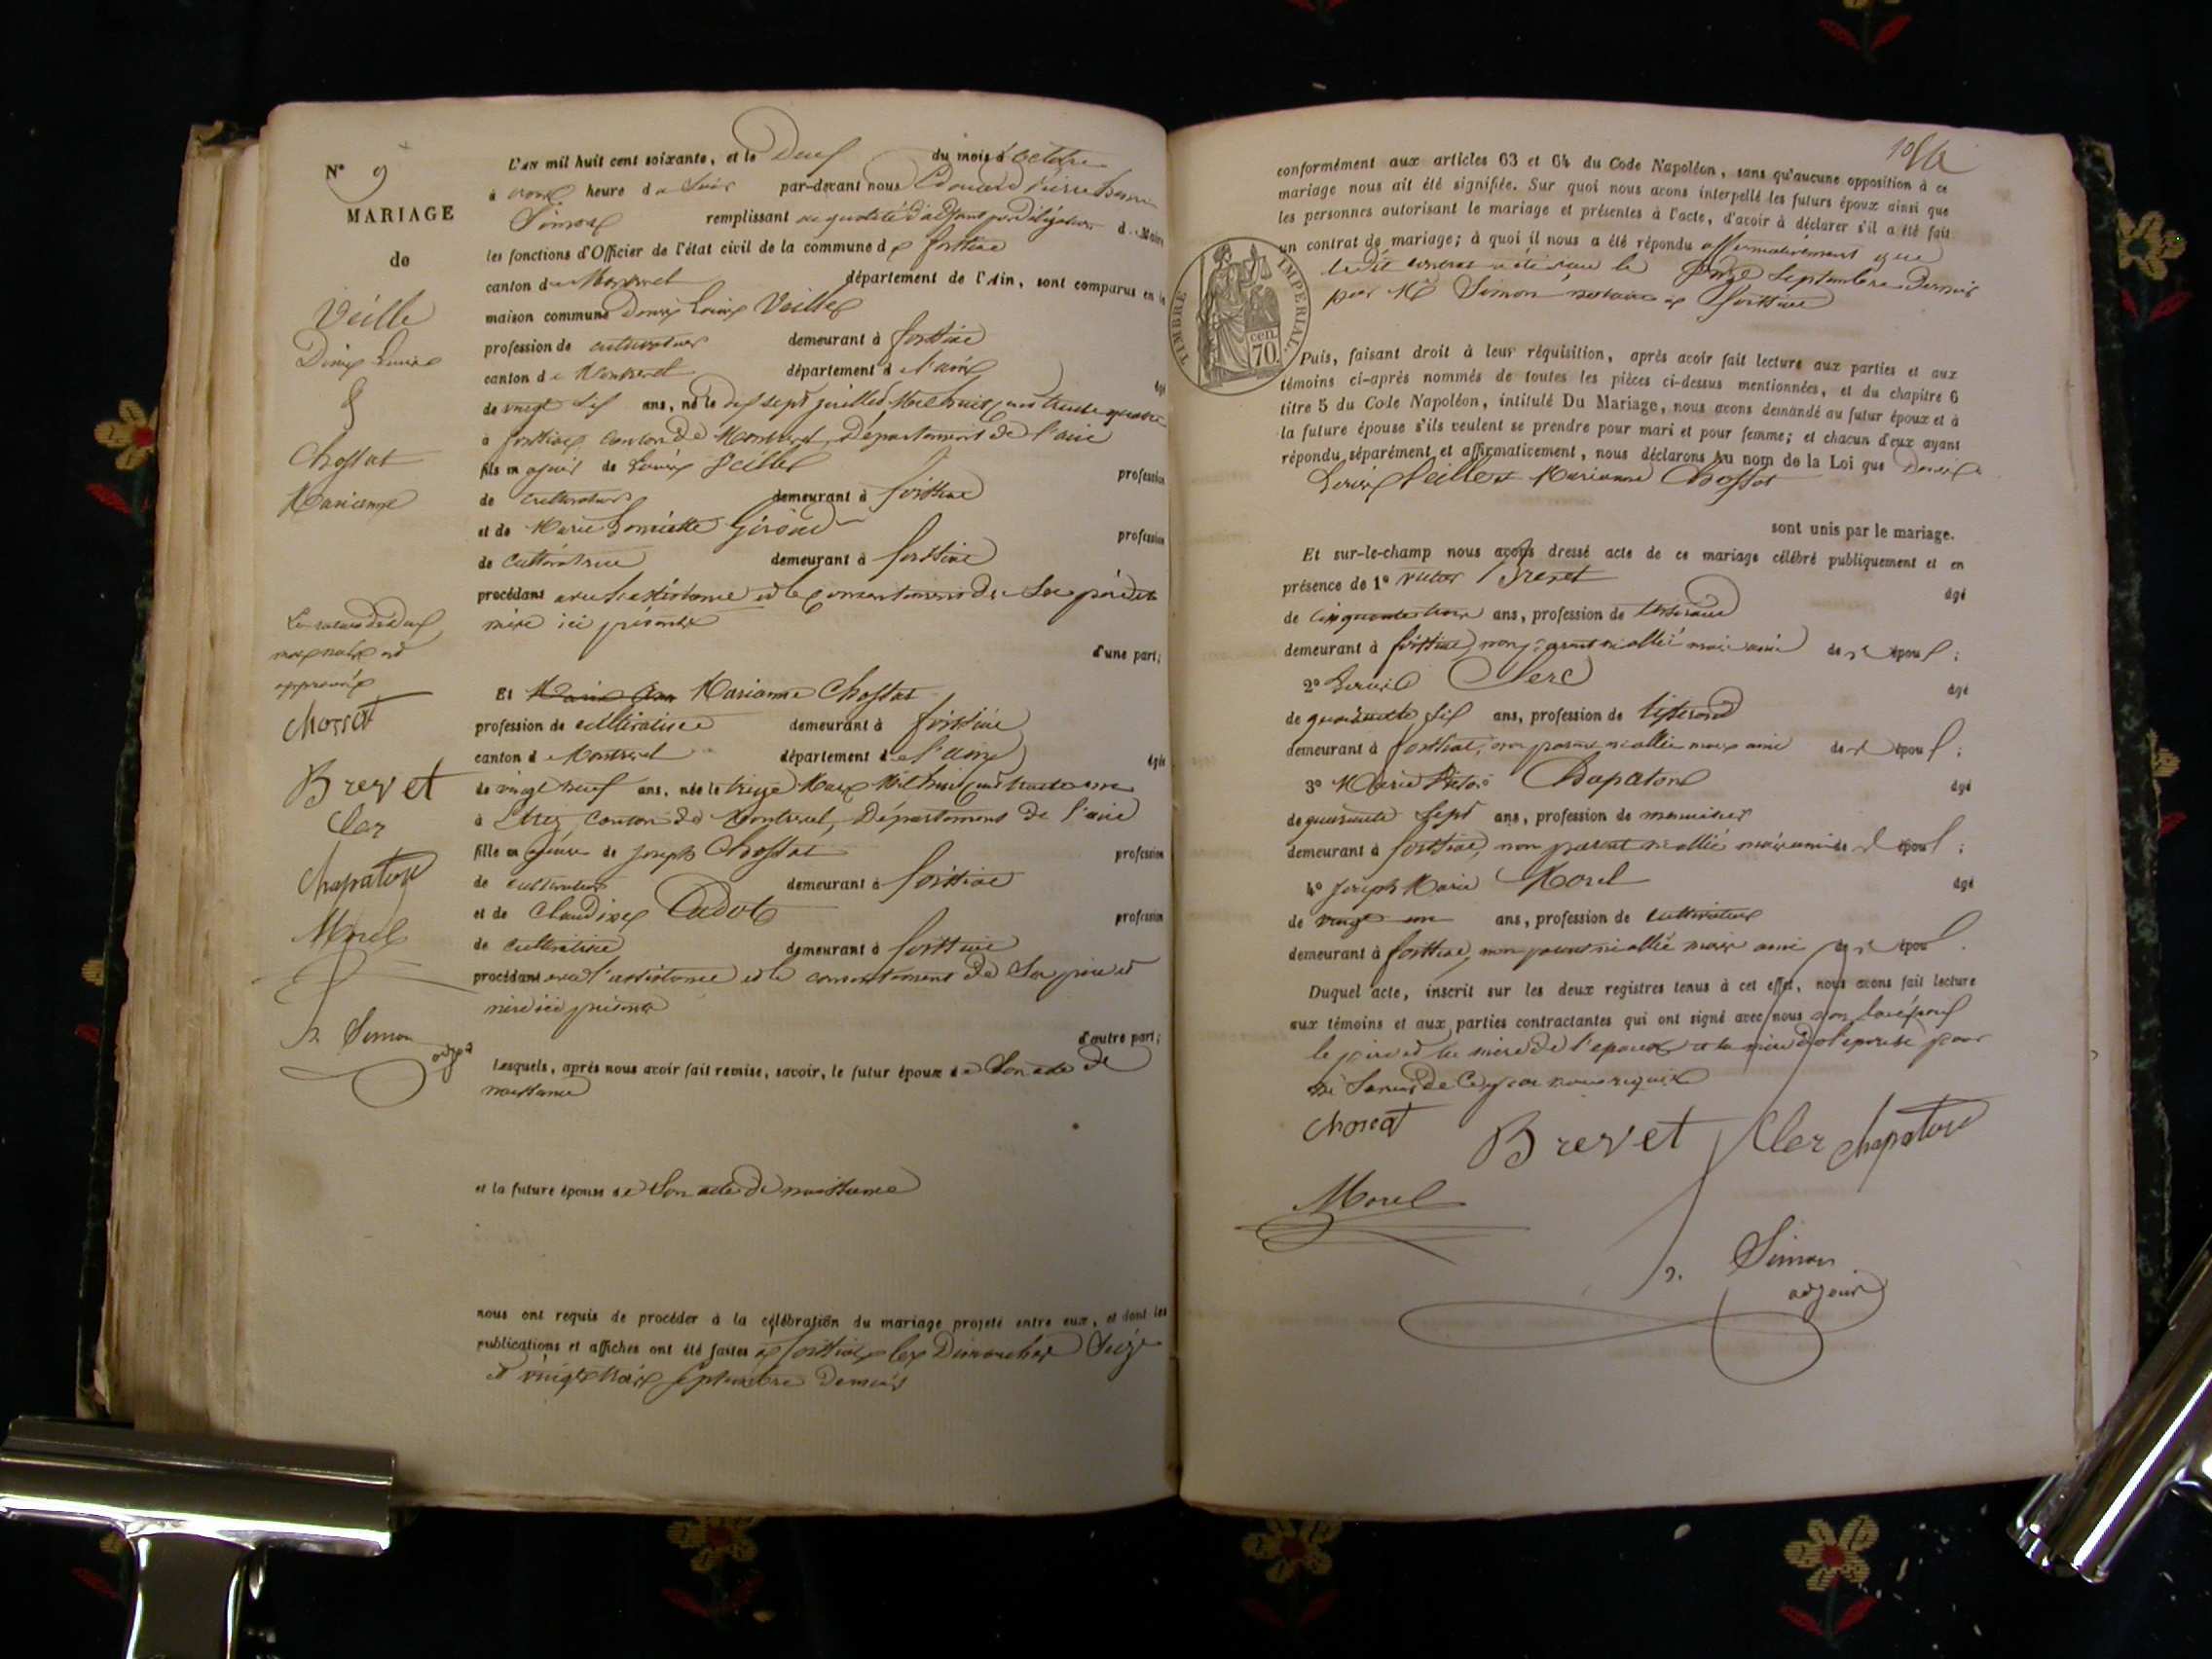 N° 9
MARIAGE
de
Veille
Denis Louis
&
Chossat
Marianne
L'AN mil huit cent soixante, et le Deux du mois d'octobre
à onze heure du soir par-devant nous Edouard Pierre
Simon remplissant en qualité d'adjoint par délégation du Maire
les fonctions d'Officier de l'état civil de la commune de foissiat
canton de Montrevel département de l'Ain, sont comparus en la
maison commune Denis Louis Veille
profession de cultivateur demeurant à foissiat
canton de Montrevel département de l'ain âgé
de vingt six ans, né le dix sept juillet Mil huit cent trente quatre
à foissiat canton de Montrevel, Département de l'ain
fils majeur de Louis Veille profession
de cultivateur demeurant à foissiat
et de Marie Giroud profession
de cultivatrice demeurant à foissiat
procédant avec l'assistance et le consentement de ses père et
mère ici présents
d'une part;
Les renvoi de deux
mots nuls est
approuvé
Chossat
Brevet
Cler
Chapaton
Morel
Simon
adjt
Et Marianne Chossat
profession de cultivatrice demeurant à foissiat
canton de Montrevel département de l'ain âgée
de vingt neuf ans, née le treize Mars Mil huit cent trente un
à Etrez, canton de Montrevel, Département de l'ain
fille majeure de Joseph Chossat profession
de cultivateur demeurant à foissiat
et de Claudine Cadot profession
de cultivatrice demeurant à foissiat
procédant avec l'assistance et le consentement de ses père et
mère ici présents
d'autre part;
Lesquels, après nous avoir fait remise, savoir, le futur époux de Son acte de
naissance
et la future épouse de Son acte de naissance
nous ont requis de procéder à la célébration du mariage projeté entre eux, et dont les
publications et affiches ont été faites à foissiat les Dimanches Seize
et vingt trois septembre dernier
conformément aux articles 63 et 64 du Code Napoléon, sans qu'aucune opposition à ce
mariage nous ait été signifiée. Sur quoi nous avons interpellé les futurs époux ainsi que
les personnes autorisant le mariage et présentes à l'acte, d'avoir à déclarer s'il a été fait
un contrat de mariage; à quoi il nous a été répondu affirmativement que
ledit contrat a été reçu le onze Septembre dernier
par Me Simon notaire à foissiat
TIMBRE IMPERIAL
cen.
70.
Puis, faisant droit à leur réquisition, après avoir fait lecture aux parties et aux
témoins ci-après nommés de toutes les pièces ci-dessus mentionnées, et du chapitre 6
titre 5 du Code Napoléon, intitulé Du Mariage, nous avons demandé au futur époux et à
la future épouse s'ils veulent se prendre pour mari et pour femme; et chacun d'eux ayant
répondu séparément et affirmativement, nous déclarons Au nom de la Loi que Denis
Louis Veille et Marianne Chossat
sont unis par le mariage.
Et sur-le-champ nous avons dressé acte de ce mariage célébré publiquement et en
présence de 1° Victor Brevet âgé
de cinquante trois ans, profession de tisserand
demeurant à foissiat, non parent ni allié mais ami des époux;
2° Louis Clerc âgé
de quarante six ans, profession de tisserand
demeurant à foissiat, non parent ni allié mais ami des époux;
3° Marie Victor Chapaton âgé
de quarante sept ans, profession de menuisier
demeurant à foissiat, non parent ni allié mais ami des époux;
4° Joseph Marie Morel âgé
de vingt un ans, profession de cultivateur
demeurant à foissiat, non parent ni allié mais ami des époux.
Duquel acte, inscrit sur les deux registres tenus à cet effet, nous avons fait lecture
aux témoins et aux parties contractantes qui ont signé avec nous non les époux
le père et la mère de l'époux et la mère de l'épouse pour
ne Savoir de ce par nous requis
Chossat Brevet Cler Chapaton
Morel
Simon
adjoint